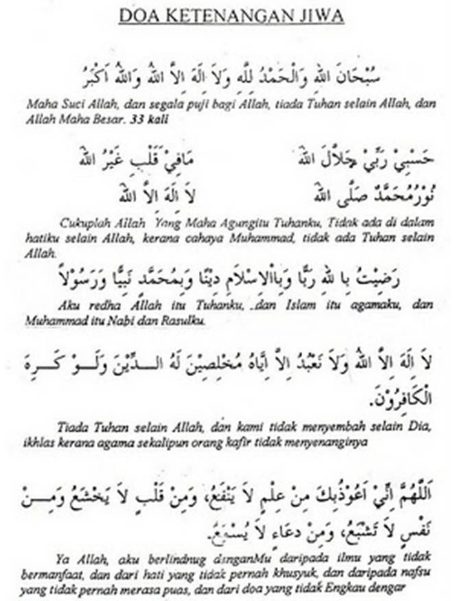 DOA KETENANGAN JIWA
سُبْحَانَ اللهِ وَالْحَمْدُ لِلَّهِ وَلاَ اِلَهَ اِلاَّ اللهُ وَاللهُ اَكْبَرُ
Maha Suci Allah, dan segala puji bagi Allah, tiada Tuhan selain Allah, dan
Allah Maha Besar. 33 kali
حَسْبِيْ رَبِّيْ جَلاَلَ اللهُ مَافِيْ قَلْبِ غَيْرُ اللهُ
نُوْرُمُحَمَّدٌ صَلَّى اللهُ لاَ اِلَهَ اِلاَّ اللهُ
Cukuplah Allah Yang Maha Agungitu Tuhanku, Tidak ada di dalam
hatiku selain Allah, kerana cahaya Muhammad, tidak ada Tuhan selain
Allah.
رَضِيْتُ بِا للهِ رَبًّا وَبِاْلاِسْلاَمِ دِيْنًا وَبِمُحَمَّدٍ نَبِيًّا وَرَسُوْلاً
Aku redha Allah itu Tuhanku, dan Islam itu agamaku, dan
Muhammad itu Nabi dan Rasulku.
لاَ اِلَهَ اِلاَّ اللهُ وَلاَ نَعْبُدُ اِلاَّ اِيَّاهُ مُخْلِصِيْنَ لَهُ الـدِّيْنَ وَلَـوْ كَـرِهَ
الْكَافِرُوْنَ.
Tiada Tuhan selain Allah, dan kami tidak menyembah selain Dia,
ikhlas kerana agama sekalipun orang kafir tidak menyenanginya
اَللَّهُمَّ اِنِّيْ اَعُوْذُبِكَ مِنْ عِلْمٍ لاَ يَنْفَعُ، وَمِنْ قَلْبٍ لاَ يَخْشَعُ وَمِـنْ
نَفْسٍ لاَ تَشْبَعُ، وَمِنْ دعَاءٍ لاَ يُسْمَعُ.
Ya Allah, aku berlindnug denganMu daripada ilmu yang tidak
bermanfaat, dan dari hati yang tidak pernah khusyuk, dan daripada nafsu
yang tidak pernah merasa puas, dan dari doa yang tidak Engkau dengar